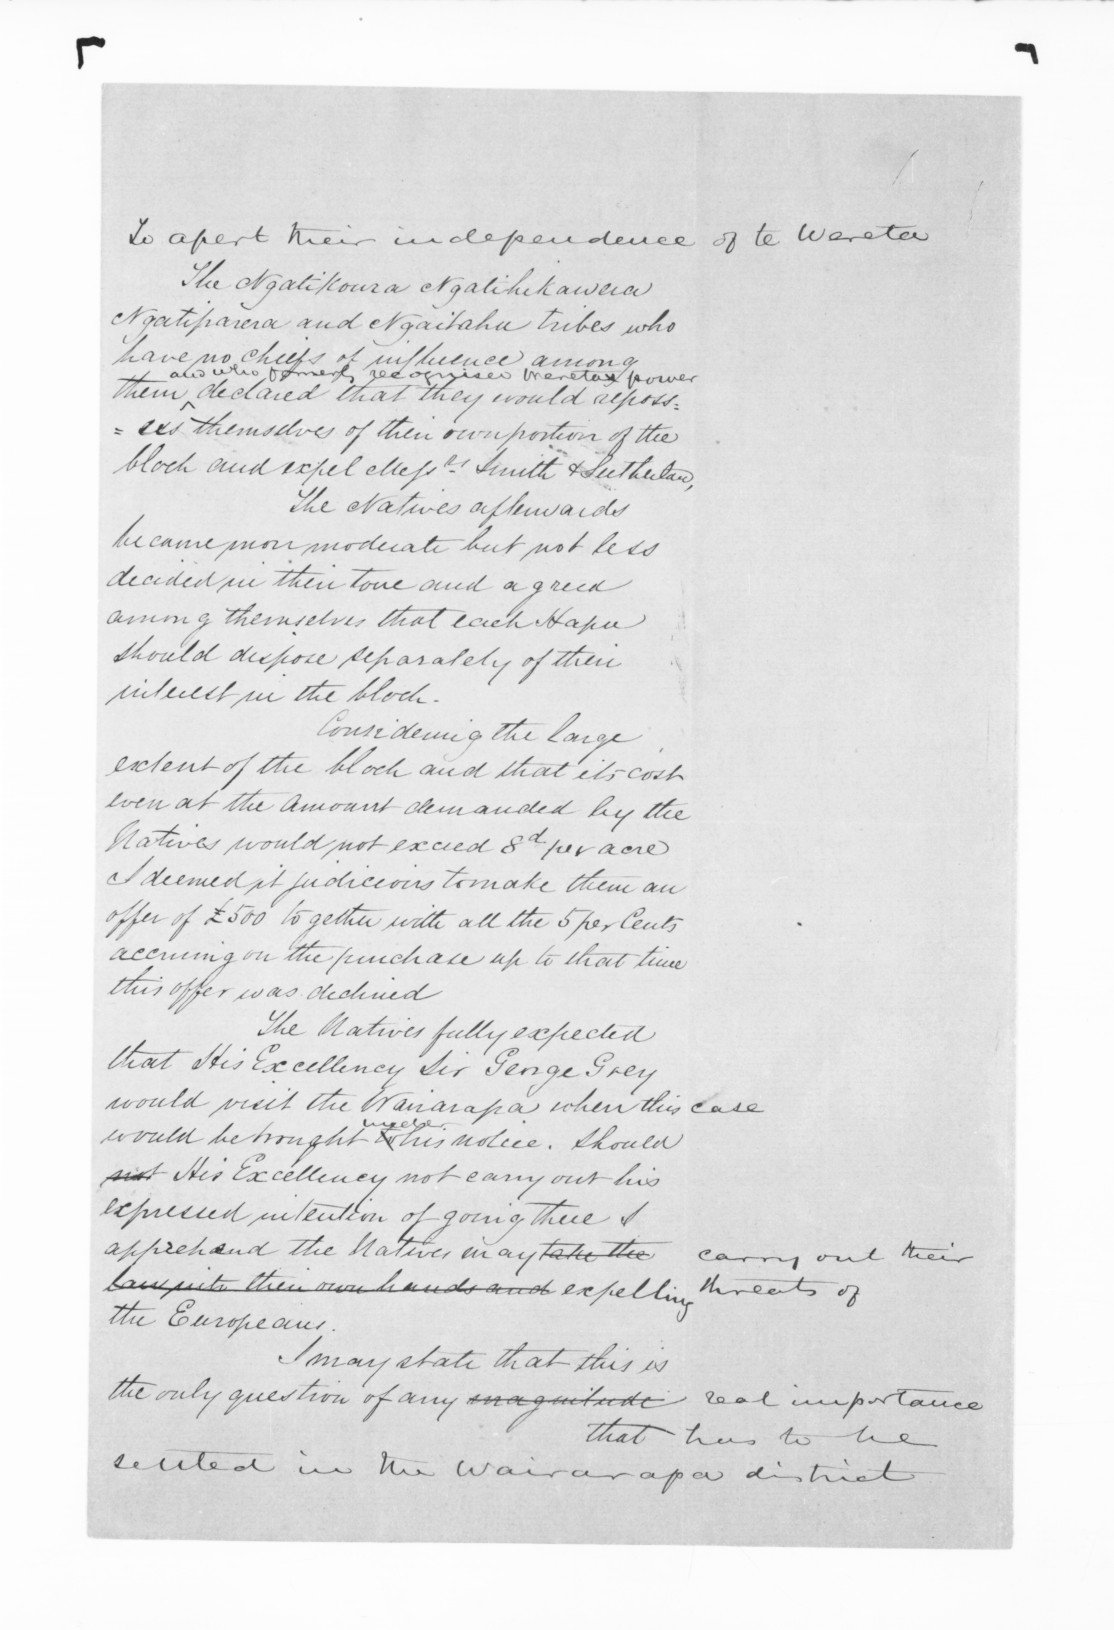 To assert their independence of te Wereta
The Ngatikoura Ngatihikawera
Ngatiparera and Ngaitahu tribes who
have no chiefs of influence among
and who formerly recognised Weretas power
them declared that they would reposs=
=ess themselves of their own portion of the
block and expel Messrs Smith & Sutherlan,
The Natives afterwards
became more moderate but not less
decided in their tone and agreed
among themselves that each Hapu
should dispose separately of their
interest in the block.
Considering the large
extent of the block and that its cost
even at the amount demanded by the
Natives would not exceed 8d per acre
I deemed it judicious to make them an
offer of £500 together with all the 5 per Cents
accruing on the purchase up to that time
this offer was declined
The Natives fully expected
that His Excellency Sir George Grey
would visit the Wairarapa when this case
under
would be brought to his notice. Should
not His Excellency not carry out his
expressed intention of going there I
apprehend the Natives may take the carry out their
law into their own hands and expelling threats of
the Europeans.
I may state that this is
the only question of any magnitude real importance
that has to be
settled in the Wairarapa district